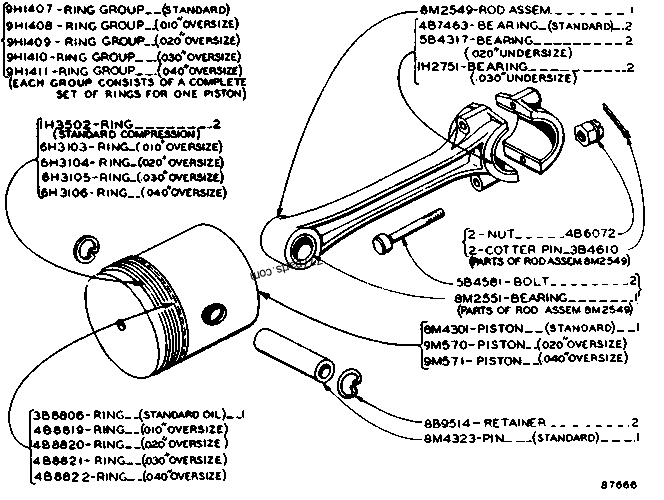 9H1407-RING GROUP__(STANDARD)
9H1408-RING GROUP__(.010"OVERSIZE)
9H1409-RING GROUP__(.020"OVERSIZE)
9H1410-RING GROUP__(.030"OVERSIZE)
9H1411-RING GROUP__(.040"OVERSIZE)
(EACH GROUP CONSISTS OF A COMPLETE
SET OF RINGS FOR ONE PISTON)
1H3502-RING________2
(STANDARD COMPRESSION)
6H3103-RING_(.010"OVERSIZE)
6H3104-RING_(.020"OVERSIZE)
6H3105-RING_(.030"OVERSIZE)
6H3106-RING_(.040"OVERSIZE)
8M2549-ROD ASSEM.________1
4B7463-BEARING_(STANDARD)_2
5B4317-BEARING________2
(.020"UNDERSIZE)
1H2751-BEARING________2
(.030"UNDERSIZE)
2-NUT____4B6072
2-COTTER PIN_3B4610
(PARTS OF ROD ASSEM 8M2549)
5B4581-BOLT______2
8M2551-BEARING______1
(PARTS OF ROD ASSEM 8M2549)
8M4301-PISTON__(STANDARD)__1
9M570-PISTON__(.020"OVERSIZE)
9M571-PISTON__(.040"OVERSIZE)
3B8806-RING__(STANDARD OIL)__1
4B8819-RING__(.010"OVERSIZE)
4B8820-RING__(.020"OVERSIZE)
4B8821-RING__(.030"OVERSIZE)
4B8822-RING__(.040"OVERSIZE)
8B9514-RETAINER________2
8M4323-PIN___(STANDARD)___1
87666